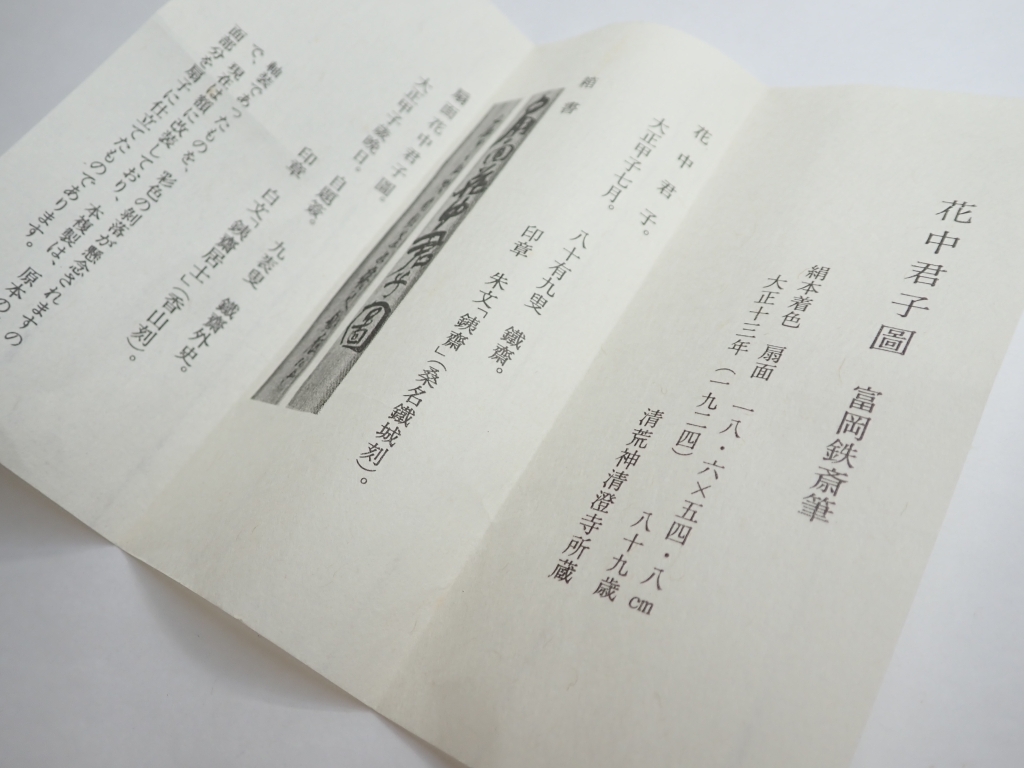 花中君子圖　富岡鉄斎筆
絹本着色　扇面　一八・六×五四・八㎝
大正十三年（一九二四）　八十九歳
清荒神清澄寺所蔵
花中君子。
大正甲子七月。　八十有九叟　鐵齋。
印章　朱文「銕齋」（桑名鐵城刻）。
箱書
扇面花中君子圖
扇面花中君子圖。
大正甲子歳晩日。自題荅。
九表叟　鐵齋外史。
印章　白文「銕齋居士」（香山刻）。
軸装であったものを、彩色の剥落が懸念されますの
で、現在は額に改装しており、本複製は、原本の
面部分を扇子に仕立てたものであります。